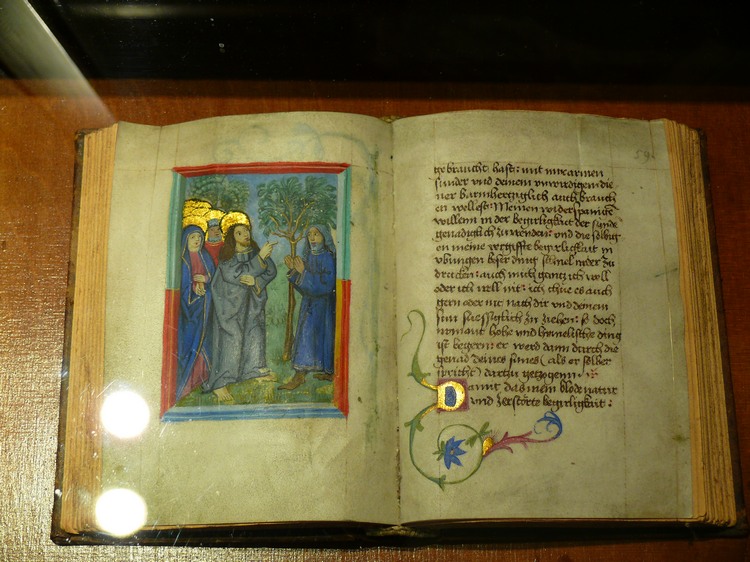 gebraucht hast: mit mir armen
sunder vnd deinem vnwirdigen die
ner barmhertziglich auch brauch
en wellest: Meinen widerspanige
willenn in der begirligkait der sunde
genadiglich zuwenden: vnd die selbig
en meine vergiffte begirligkait in
vbungen boser ding schnel nider zu
drucken: auch mich gantz ich woll
oder ich woll nit: ich thue es auch
gern oder nit nach dir vnd deinem
sun fleissiglich zu ziehen: so doch
niemant hohe vnd himelische ding
ist begeren: er werd dann durch die
genad deines sunes (als er selber
spricht) dartzu getzogenn:
Damit das mein blode natur
vnd zerstorte begirligkait: